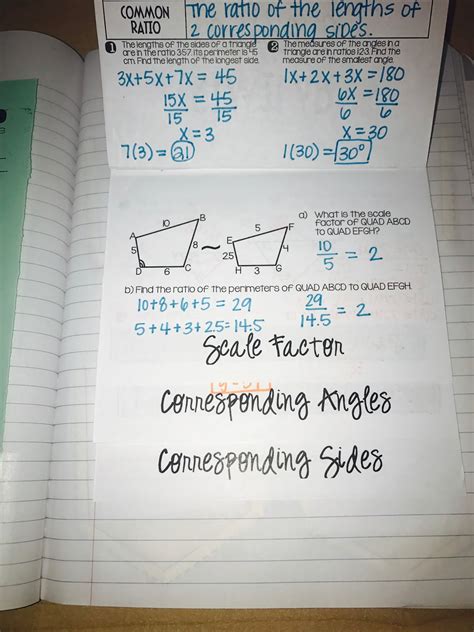 COMMON RATIO
The ratio of the lengths of
2 corresponding sides.
1 The lengths of the sides of a triangle
are in the ratio 3:5:7. Its perimeter is 45
cm. Find the length of the longest side.
3x+5x+7x = 45
15x = 45
15 15
x = 3
7(3) = 21
2 The measures of the angles in a
triangle are in ratios 1:2:3. Find the
measure of the smallest angle.
1x+2x+3x = 180
6x = 180
6 6
x = 30
1(30) = 30°
A 10 B
5 8
D 6 C
~
E 5 F
2.5 4
H 3 G
a) What is the scale
factor of QUAD ABCD
to QUAD EFGH?
10
5 = 2
b) Find the ratio of the perimeters of QUAD ABCD to QUAD EFGH.
10+8+6+5 = 29
5+4+3+2.5=14.5
29
14.5 = 2
Scale Factor
Corresponding Angles
Corresponding Sides